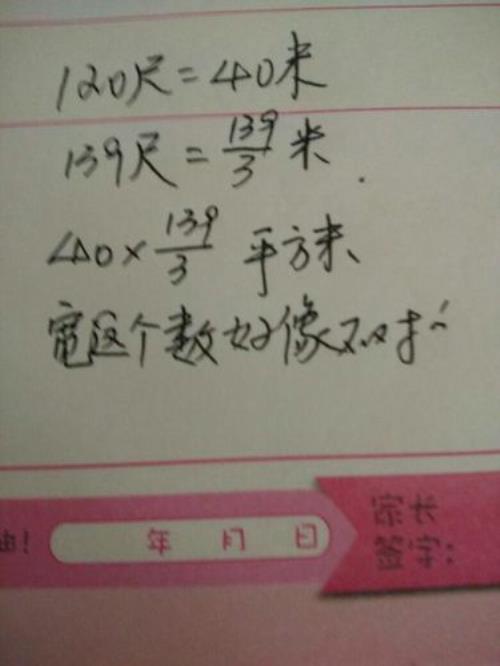 120尺=40米
139尺=139/3米.
40×139/3平方米
宽这个数好像不对
年 月 日
家长
签字: